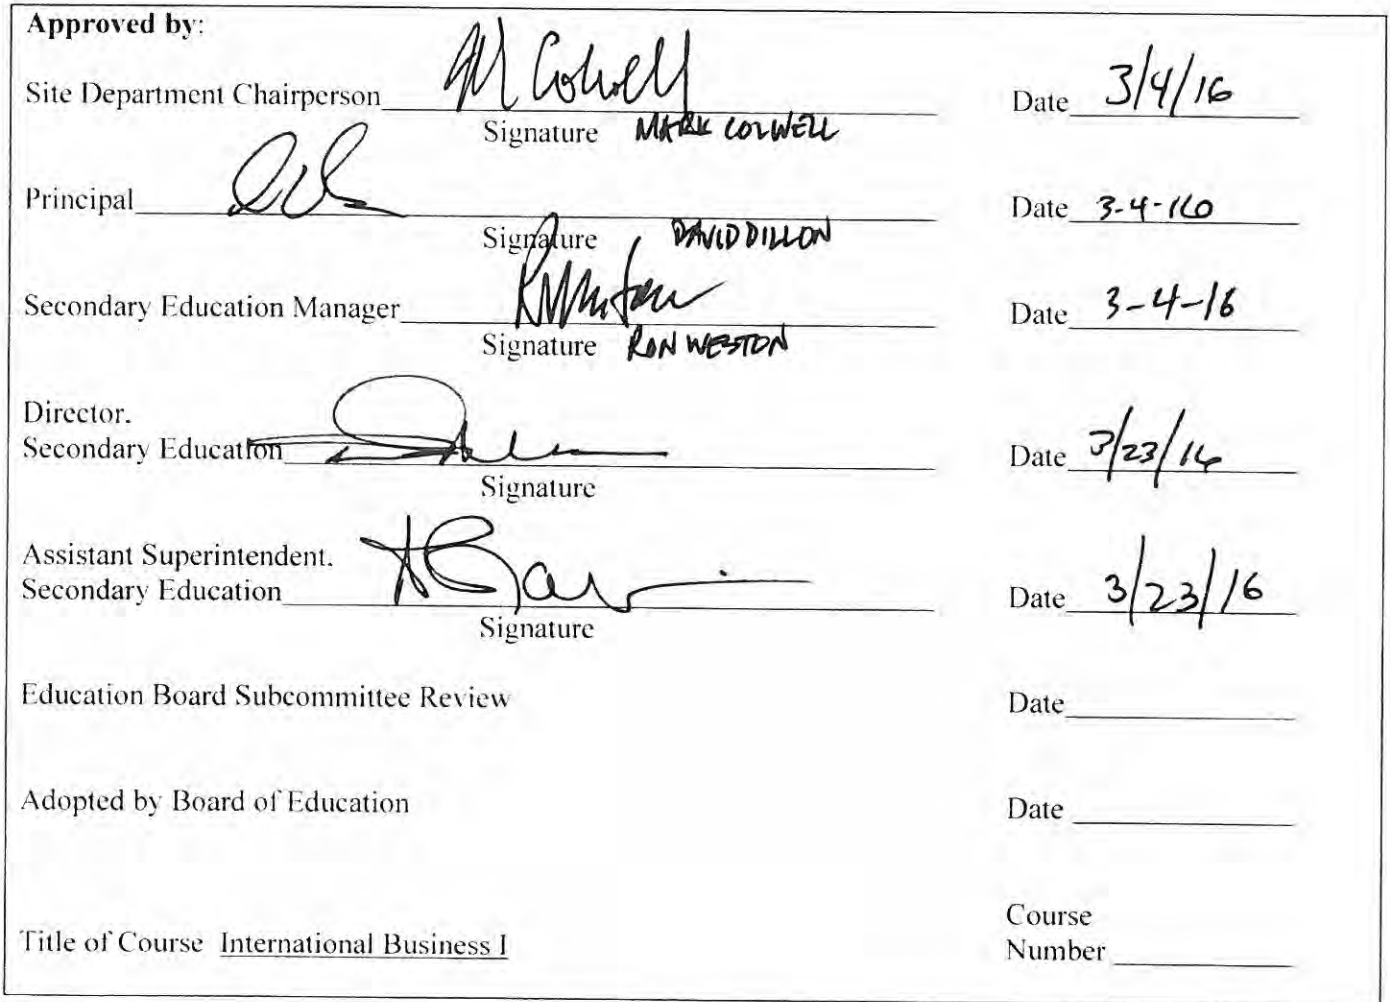 Approved by:
Site Department Chairperson M Colwell Date 3/4/16
Signature MARK COLWELL
Principal Date 3-4-16
Signature DAVID DILLON
Secondary Education Manager Date 3-4-16
Signature RON WESTON
Director.
Secondary Education Date 3/23/16
Signature
Assistant Superintendent.
Secondary Education Date 3/23/16
Signature
Education Board Subcommittee Review Date
Adopted by Board of Education Date
Course
Title of Course International Business I Number